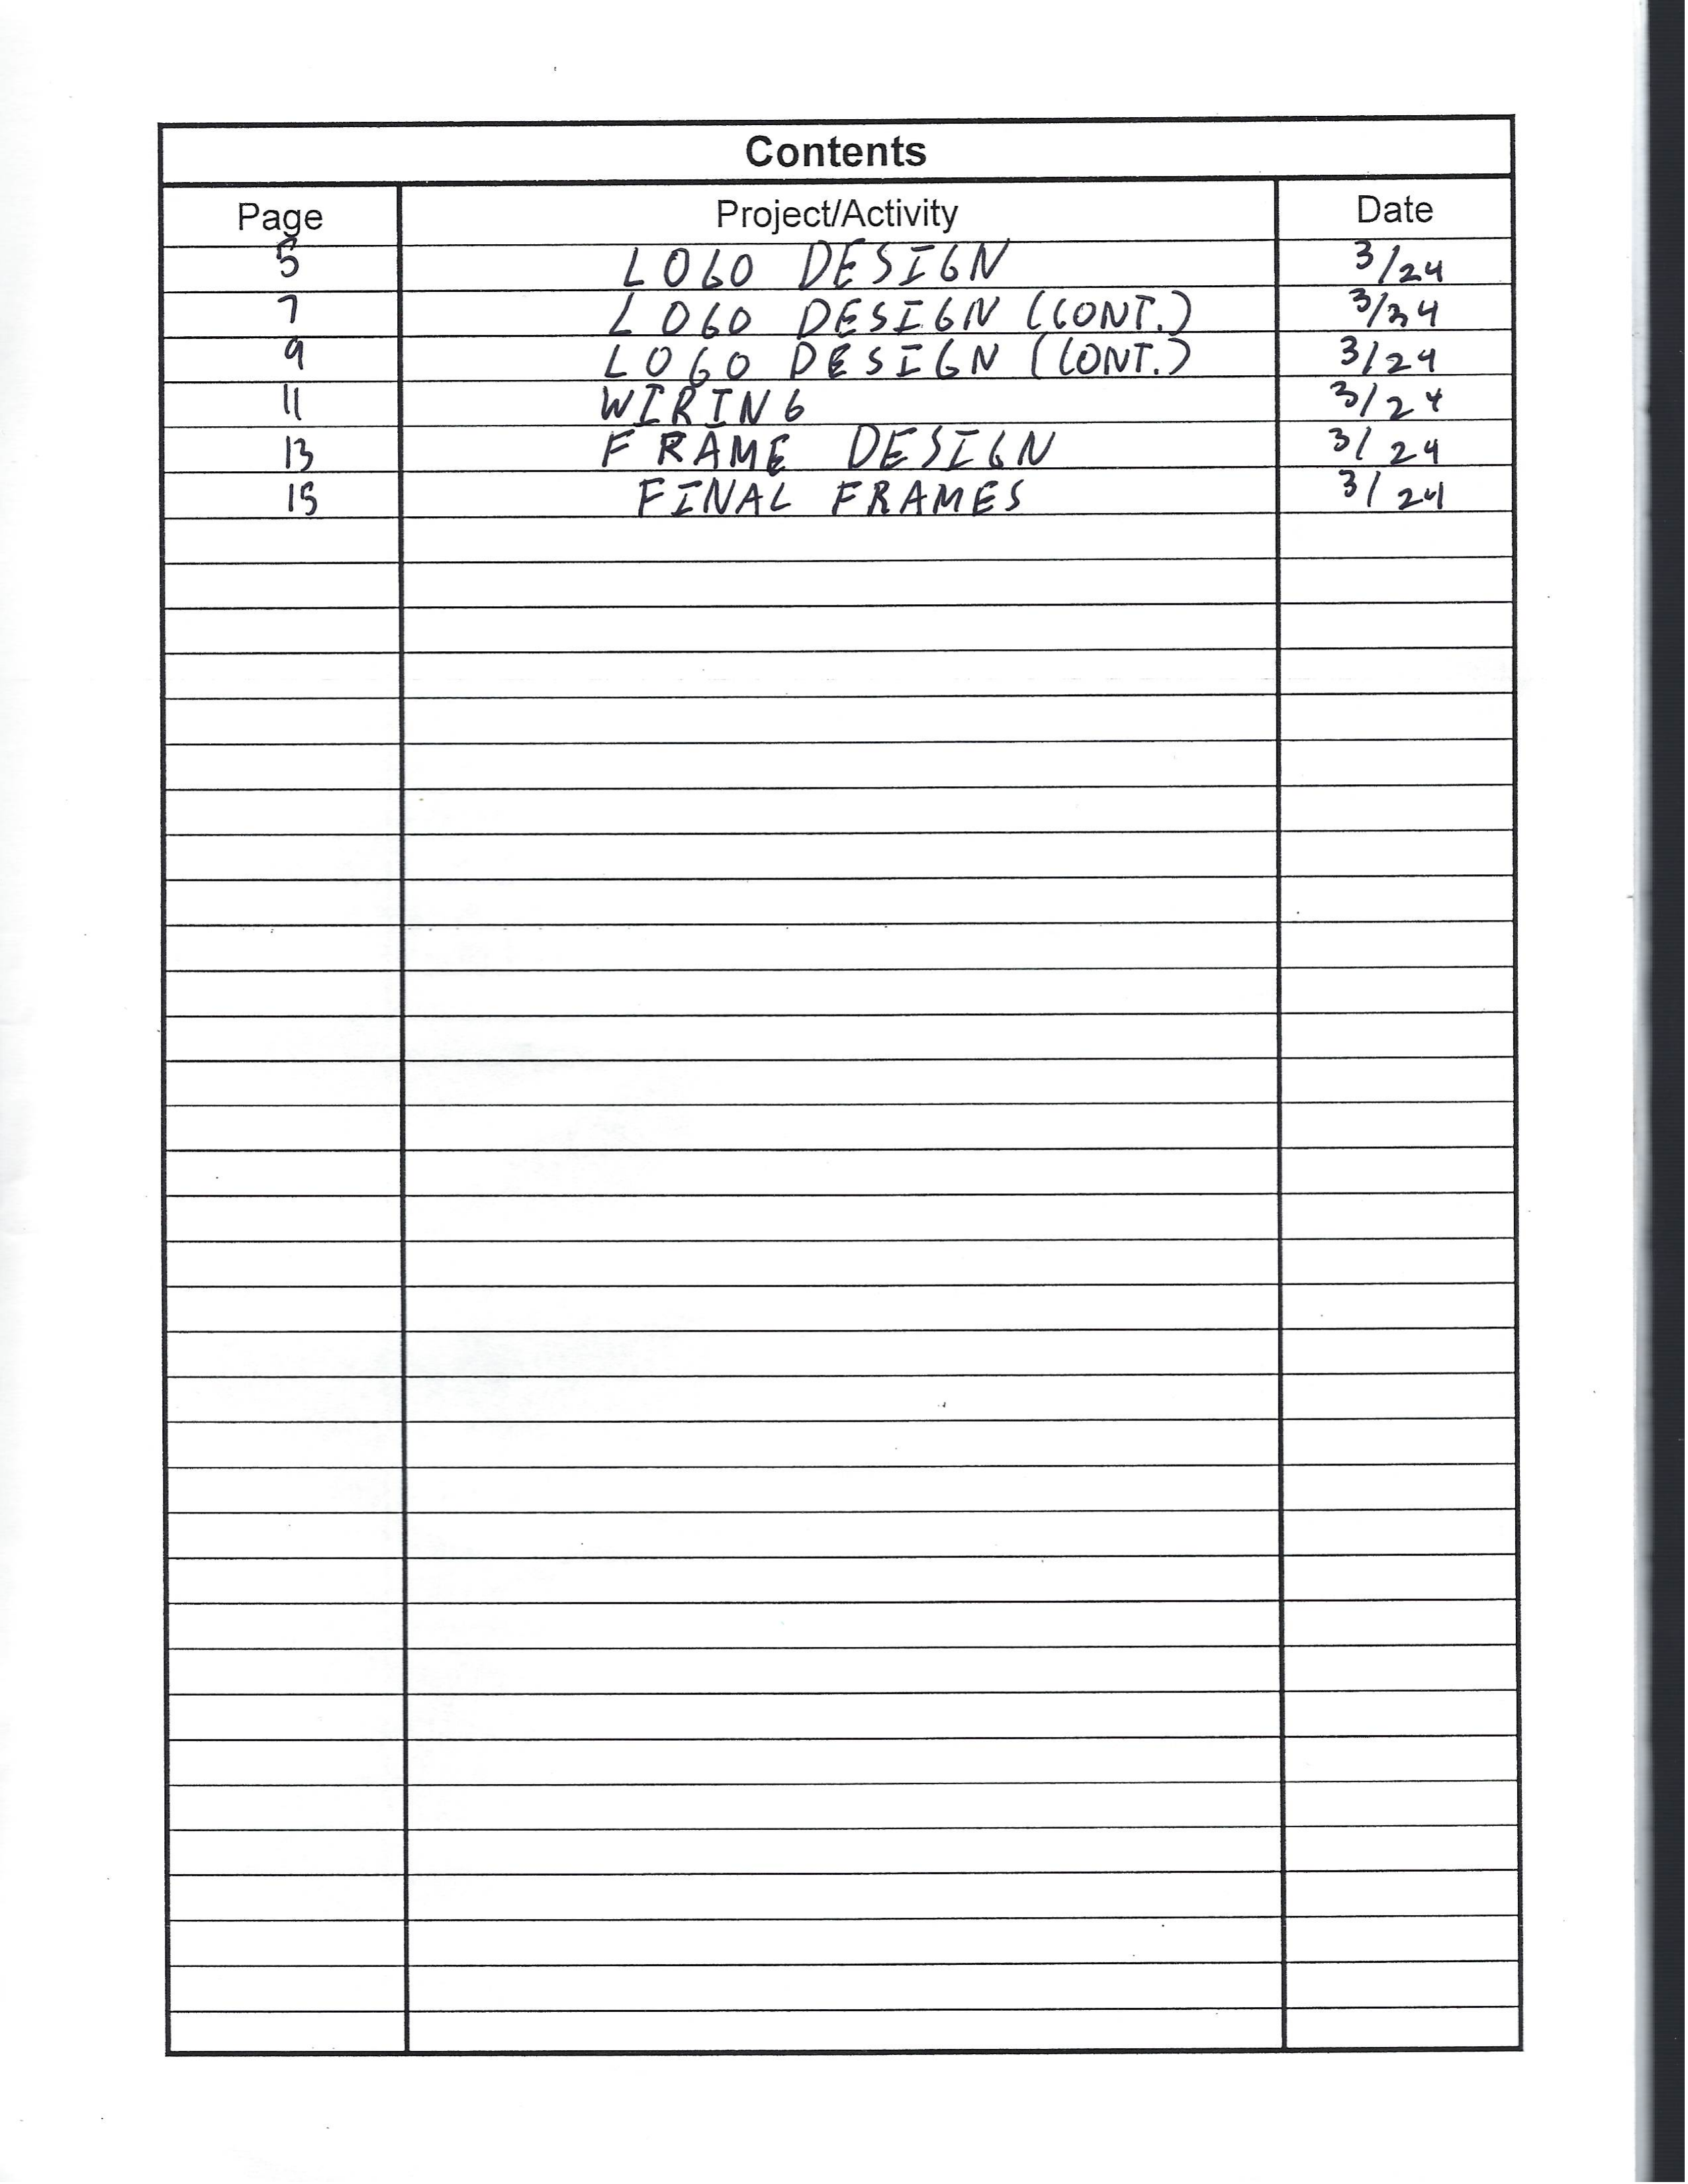 Contents
Page Project/Activity Date
5 LOGO DESIGN 3/24
7 LOGO DESIGN (CONT.) 3/24
9 LOGO DESIGN (CONT.) 3/24
11 WIRING 3/24
13 FRAME DESIGN 3/24
15 FINAL FRAMES 3/24